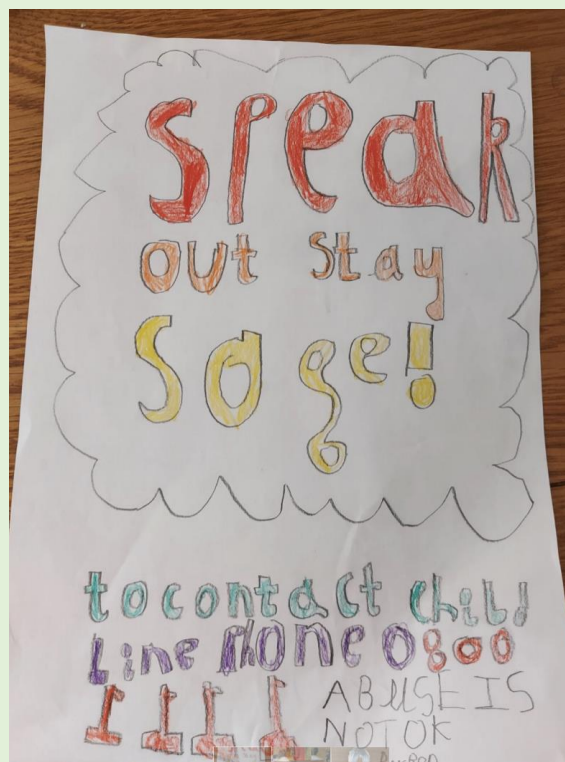 Speak
out stay
Safe!
to contact child
Line phone 0800
1111 ABUSE IS
NOT OK